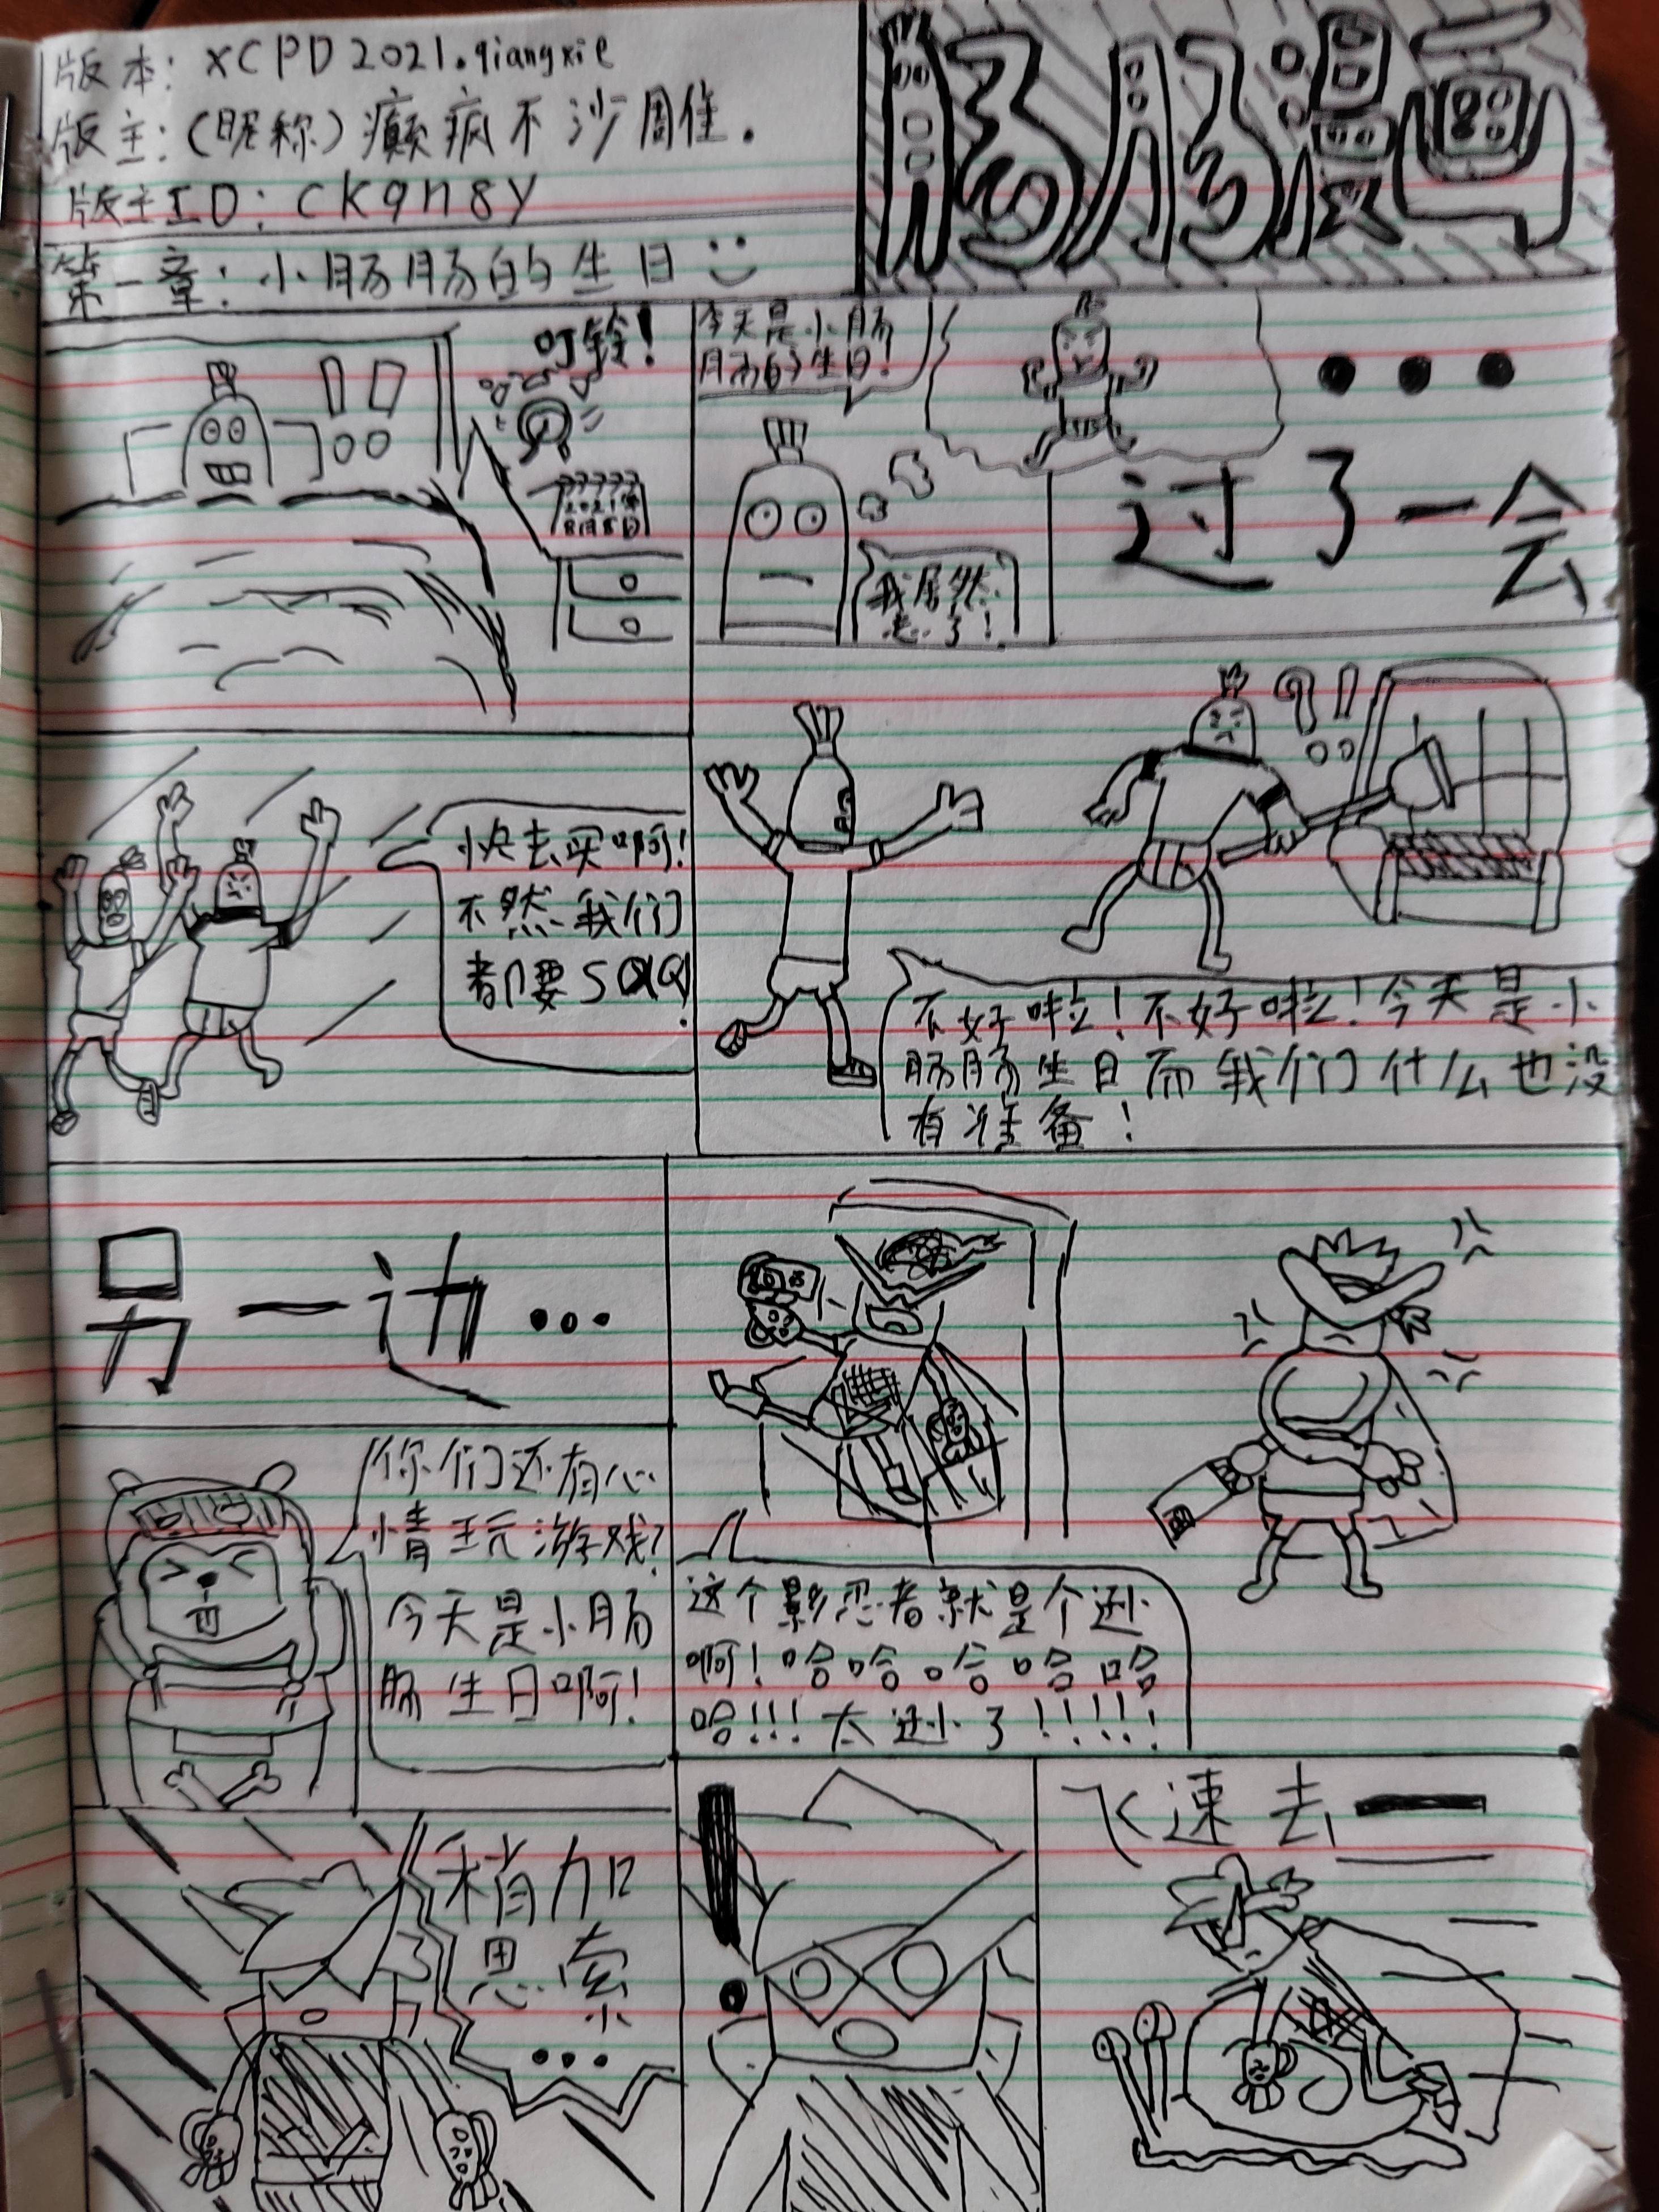 版本：XCPD2021.qiangxie
版主：（昵称）癫疯不沙雕。
版主ID：ckqn8y
肠肠漫画
第一章：小肠肠的生日
叮铃！
2021年
8月8日
今天是小肠
肠的生日！
我居然
忘了！
过了一会
快去买啊！
不然我们
都要SQQ！
不好啦！不好啦！今天是小
肠肠生日而我们什么也没
有准备！
另一边...
你们还有心
情玩游戏？
今天是小肠
肠生日啊！
这个影忍者就是个逊
啊！哈哈哈哈哈
哈!!!太逊了!!!!!
稍加
思索
...
飞速去一